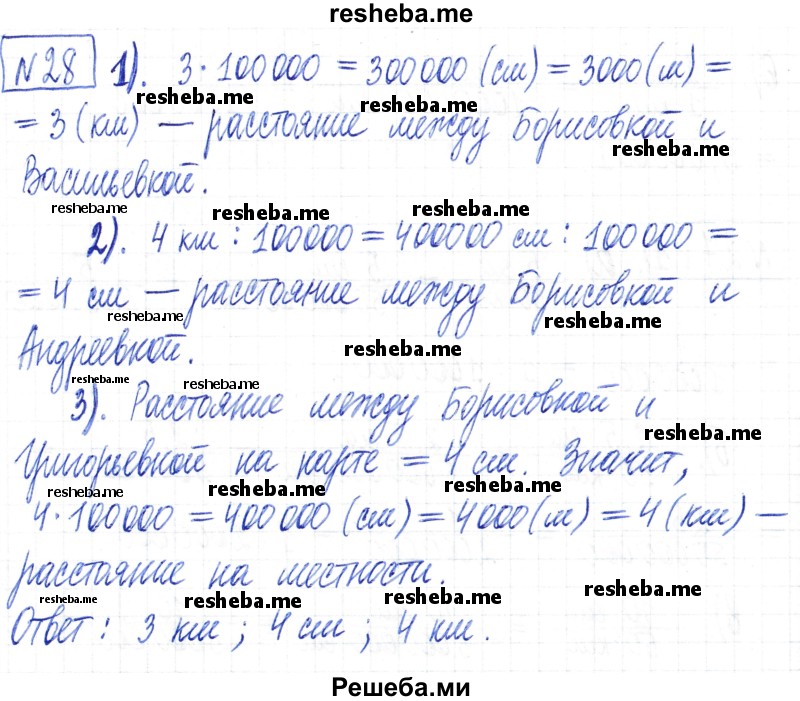 resheba.me
№28 1). 3 · 100000 = 300000 (см) = 3000 (м) =
resheba.me resheba.me
= 3 (км) — расстояние между Борисовкой и
resheba.me
Васильевкой.
resheba.me resheba.me resheba.me
2). 4 км : 100000 = 400000 см : 100000 =
= 4 см — расстояние между Борисовкой и
resheba.me resheba.me
Андреевкой.
resheba.me
resheba.me resheba.me
3). Расстояние между Борисовкой и
resheba.me
Григорьевкой на карте = 4 см. Значит,
resheba.me resheba.me resheba.me
4 · 100000 = 400000 (см) = 4000 (м) = 4 (км) —
расстояние на местности.
resheba.me resheba.me resheba.me resheba.me
Ответ : 3 км ; 4 см ; 4 км.
Решеба.ми